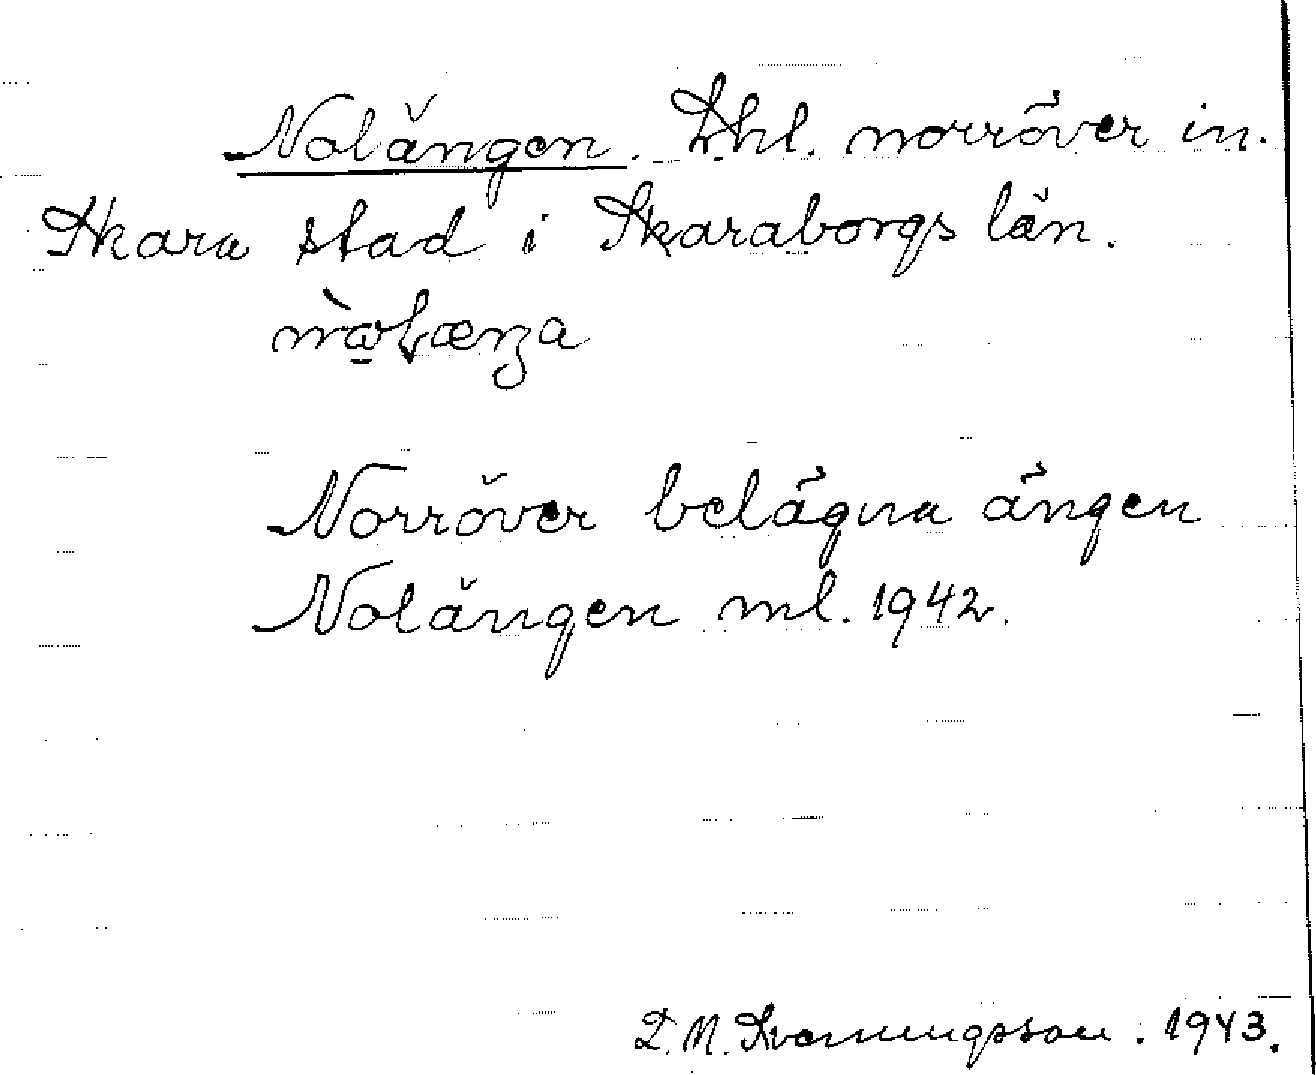 Nolängen. Lhl. norröver in.
Skara stad i Skaraborgs län.
Norröver belägna ängen
Nolängen ml. 1942.
1943.